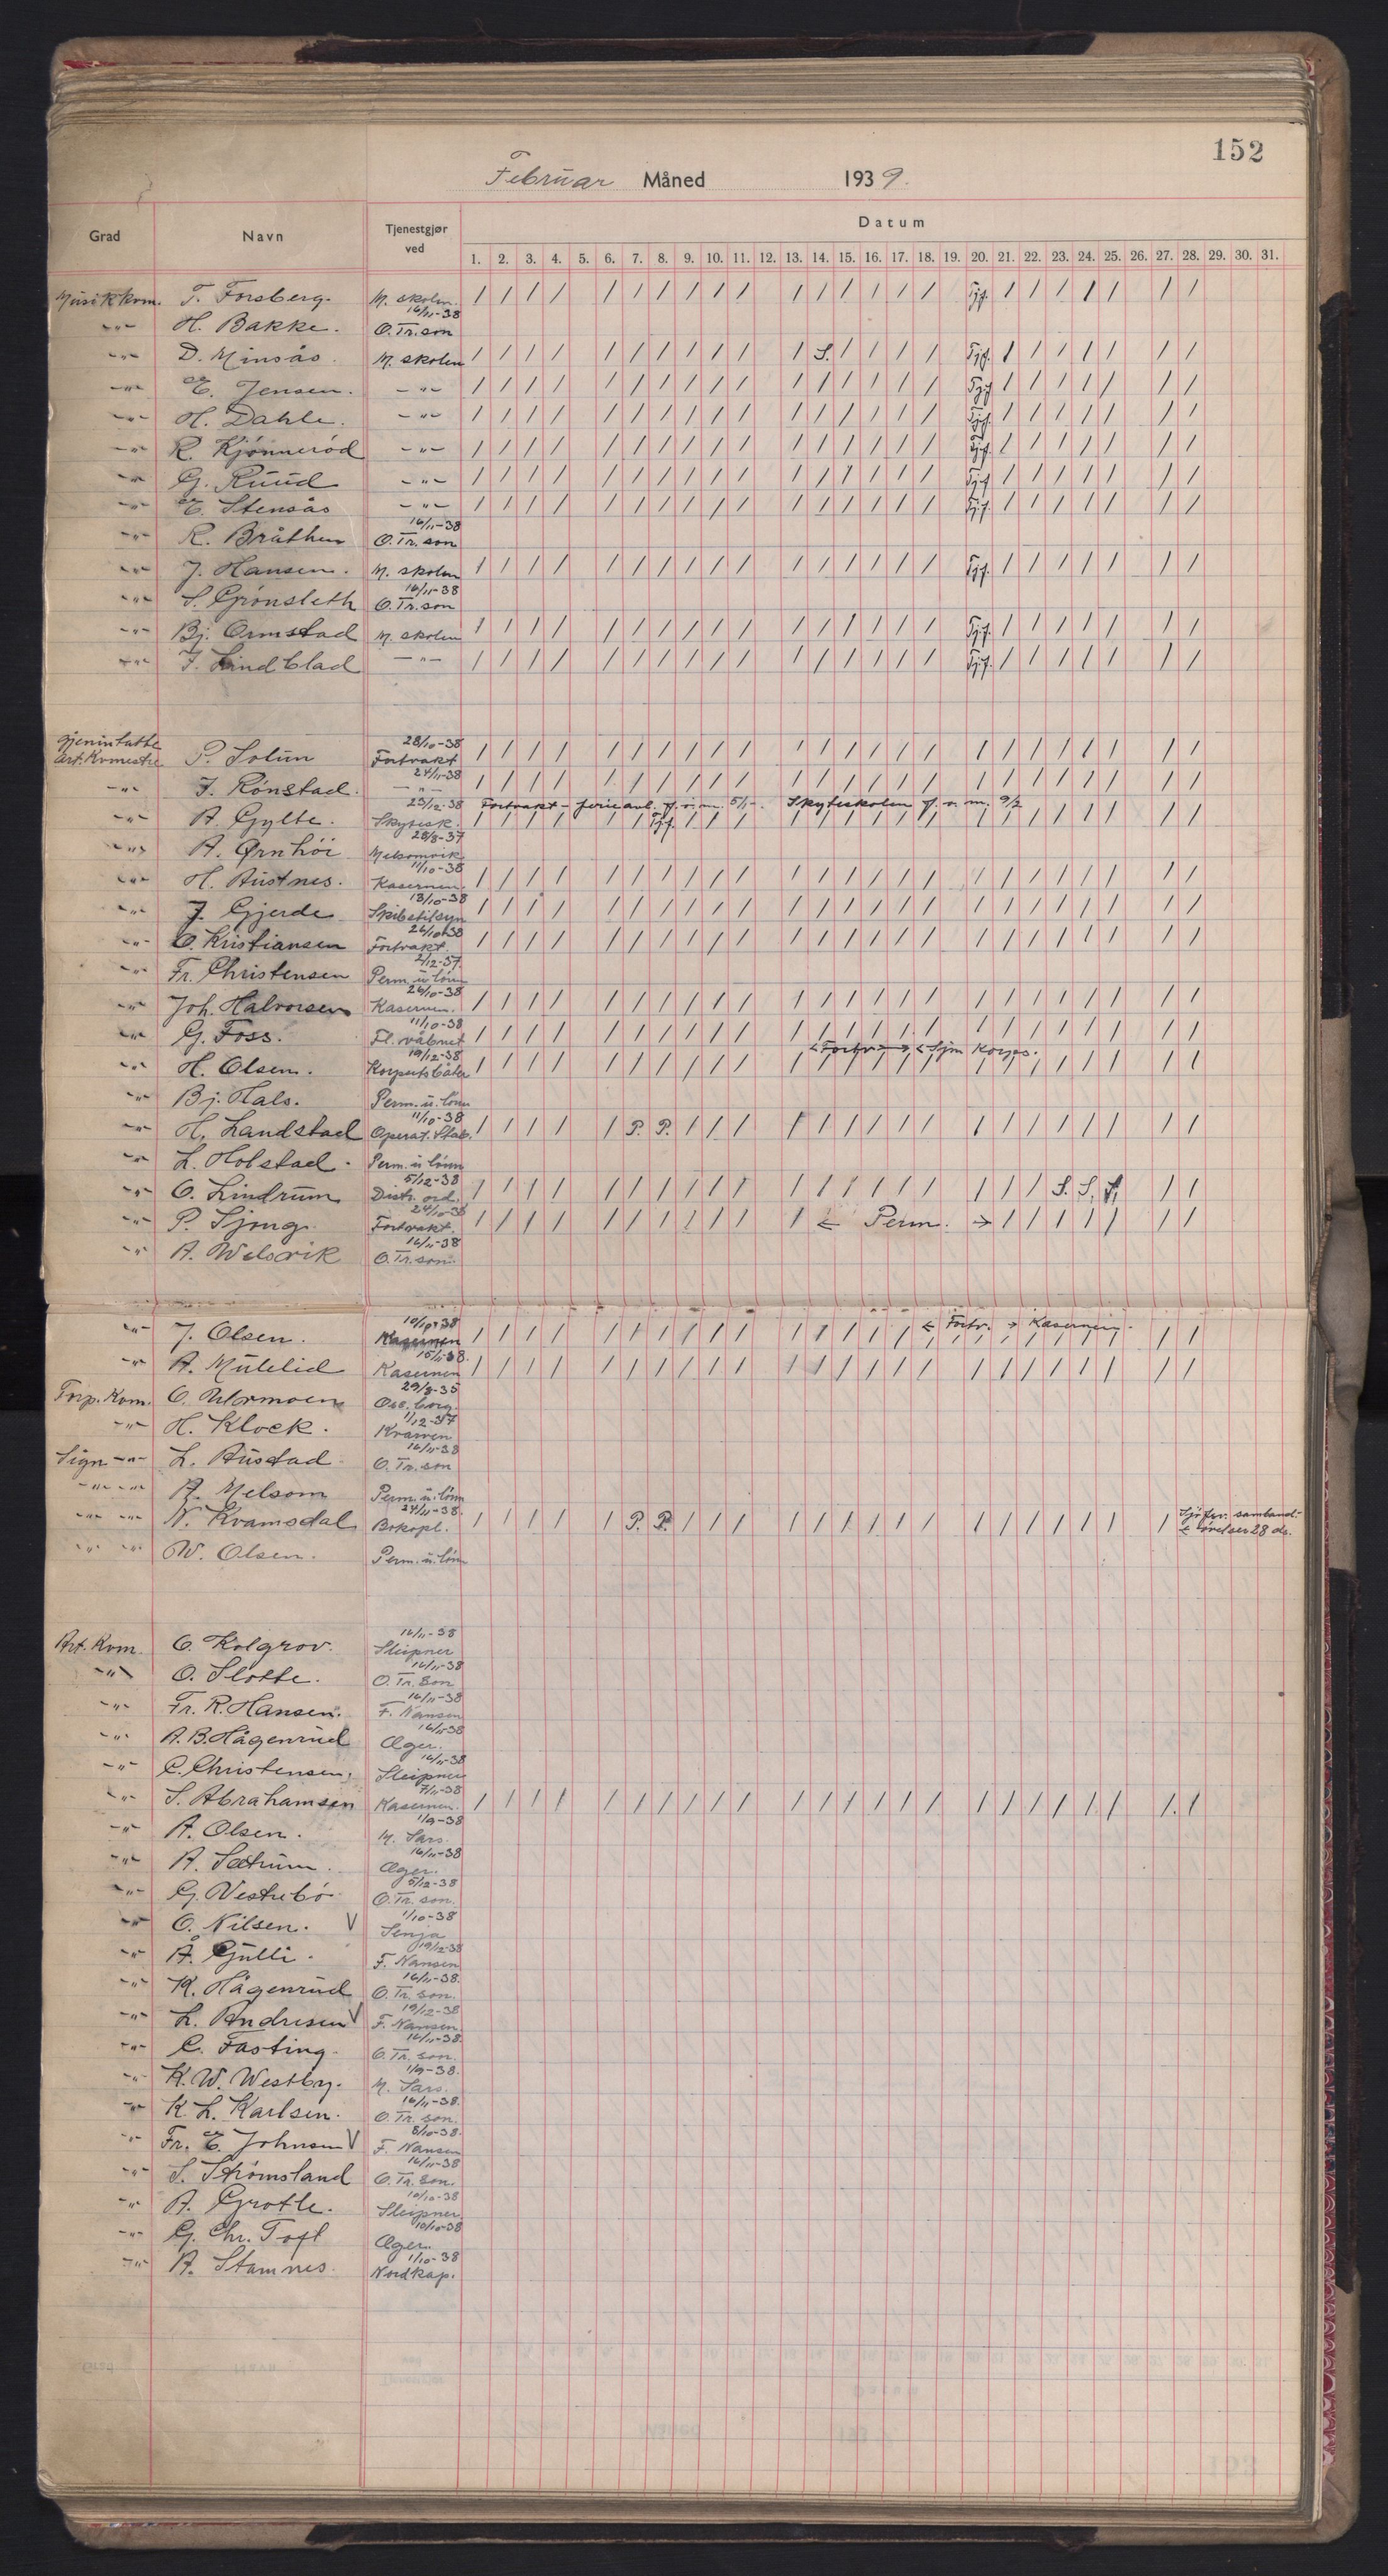 152
Februar Måned 1939.
Grad Navn Tjenestgjør ved Datum
1. 2. 3. 4. 5. 6. 7. 8. 9. 10. 11. 12. 13. 14. 15. 16. 17. 18. 19. 20. 21. 22. 23. 24. 25. 26. 27. 28. 29. 30. 31.
Musikkom. T. Forsberg. M. skolen. / / / / / / / / / / / / / / / / Tjf. / / / / / / /
-"- H. Bakke. 16/11-38 O. Tr.son
-"- D. Minsås. M. skolen / / / / / / / / / / / S. / / / / Tjf. / / / / / / /
-"- E. Jensen. -"- / / / / / / / / / / / / / / / / Tjf / / / / / / /
-"- H. Dahle. -"- / / / / / / / / / / / / / / / / Tjf. / / / / / / /
-"- R. Kjønnerød -"- / / / / / / / / / / / / / / / / Tjf. / / / / / / /
-"- G. Ruud -"- / / / / / / / / / / / / / / / / Tjf / / / / / / /
-"- E. Stensås -"- / / / / / / / / / / / / / / / / Tjf. / / / / / / /
-"- R. Bråthen 16/11-38 O. Tr. son
-"- J. Hansen. M. skolen / / / / / / / / / / / / / / / / Tjf. / / / / / / /
-"- S. Grønsleth 16/11-38 O. Tr. son
-"- Bj. Ormstad M. skolen / / / / / / / / / / / / / / / / Tjf. / / / / / / /
-"- J. Lindblad -"- / / / / / / / / / / / / / / / / Tjf. / / / / / / /
gjenintatte
Art. Kvmestre P. Solum 28/10-38 Fortvakt / / / / / / / / / / / / / / / / / / / / / / / /
-"- J. Rønstad. 24/11-38 -"- / / / / / / / / / / / / / / / / / / / / / / / /
Fortvakt - ferieavl. f. o. m. 5/1-. Skyteskolen f. o. m. 9/2
-"- A. Gylte. 23/12-38 Skytesk. / / / / / / Tjf. / / / / / / / / / / / / / / / / /
-"- A. Ørnhöi 28/8-37 Melsomvik
-"- H. Austnes. 11/10-38 Kasernen. / / / / / / / / / / / / / / / / / / / / / / / /
-"- J. Gjerde 13/10-38 Skibstilsyn / / / / / / / / / / / / / / / / / / / / / / / /
-"- O. Kristiansen 26/10-38 Fortvakt. / / / / / / / / / / / / / / / / / / / / / / / /
-"- Fr. Christensen 2/12-37 Perm. u. lønn
-"- Joh. Halvorsen 26/10-38 Kasernen. / / / / / / / / / / / / / / / / / / / / / / / /
-"- G. Foss. 11/10-38 Fl. våbnet / / / / / / / / / / / / / / / / / / / / / / / /
← Fortv → ← Sjm Korps.
-"- H. Olsen. 19/12-38 Korpsets båter / / / / / / / / / / / / / / / / / / / / / / / /
-"- Bj. Hals. Perm. u. lønn
-"- H. Landstad 11/10-38 Operat. Stab. / / / / / P. P. / / / / / / / / / / / / / / / / /
-"- L. Holstad. Perm. u lønn
-"- O. Lindrum 5/12-38 Distr. ord. / / / / / / / / / / / / / / / / / / / S. S. S. / /
-"- P. Sjong. 24/10-38 Fortvakt. / / / / / / / / / / / ← Perm. → / / / / / / /
-"- A. Welsvik 16/11-38 O. Tr. son.
← Fortv. → Kasernen.
-"- J. Olsen. 10/10-38 Kasernen / / / / / / / / / / / / / / / / / / / / / / / /
-"- A. Mulelid 15/11-38. Kasernen / / / / / / / / / / / / / / / / / / / / / / / /
Torp. Kvm. 29/8-35
-"- H. Klock. 1/12-37
Sign -"- L. Austad 16/11-38 O. Tr. son
-"- -"- A. Melsom Perm. u. lønn
-"- -"- N. Kvamsdal 24/11-38. Bokopl. / / / / / P. P. / / / / / / / / / / / / / / / / Sjøfsv. samband.-
← øvelser 28 ds.
-"- -"- W. Olsen. Perm. u. lønn
Art. Kvm. O. Kolgrov. 16/11-38 Sleipner
-"- O. Slotte. 16/11-38 O. Tr. Son
-"- Fr. R. Hansen. 16/11-38 F. Nansen
-"- A. B. Hågenrud 16/11-38 Æger.
-"- C. Christensen. 16/11-38 Sleipner
-"- S. Abrahamsen 7/11-38 Kasernen. / / / / / / / / / / / / / / / / / / / / / / / /
-"- A. Olsen. 1/9-38 M. Sars.
-"- A. Sætrum. 16/11-38 Æger.
-"- G. Vestrebö 5/12-38 O. Tr. son.
-"- O. Nilsen. V 1/10-38 Senja
-"- Å. Gulli. 19/12-38 F. Nansen
-"- K. Hågenrud 16/11-38. O. Tr. son.
-"- L. Andresen V 19/12-38 F. Nansen
-"- C. Fasting. 16/11-38. O. Tr. son.
-"- K. W. Westby. 1/9-38. M. Sars.
-"- K. L. Karlsen. 16/11-38. O. Tr. son.
-"- Fr. E. Johnsen V 8/10-38. F. Nansen
-"- S. Strømsland 16/11-38 O. Tr. son.
-"- A. Grotle. 10/10-38 Sleipner
-"- G. Chr. Toft 10/10-38 Æger.
-"- A. Stamnes. 1/10-38 Nordkap.